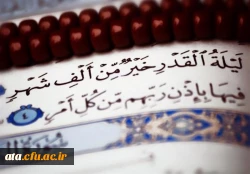 لَيْلَةُ ٱلْقَدْرِ خَيْرٌ مِّنْ أَلْفِ شَهْرٍ
فِيهَا بِإِذْنِ رَبِّهِم مِّن كُلِّ أَمْرٍ ٤
ata.cfu.ac.ir